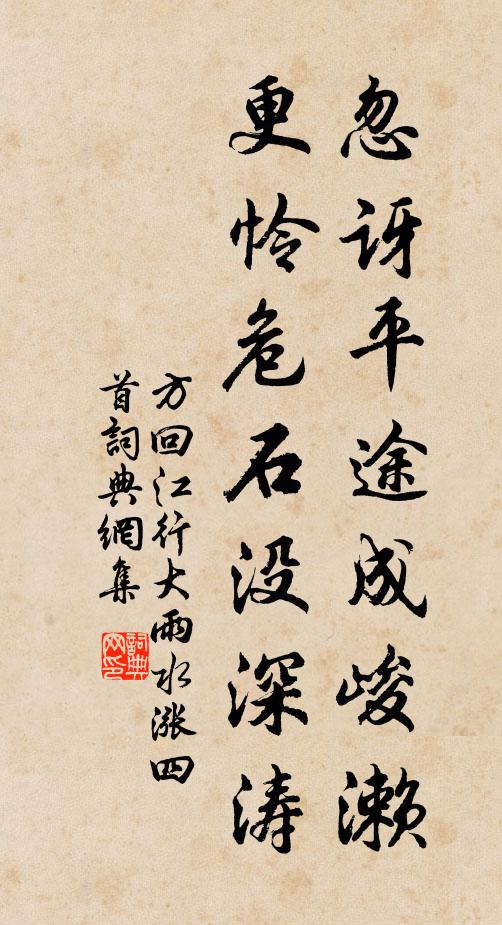 忽讶平途成峻濑
更怜危石没深涛
方回江行大雨水涨四
首詞典網集
詞典
网印